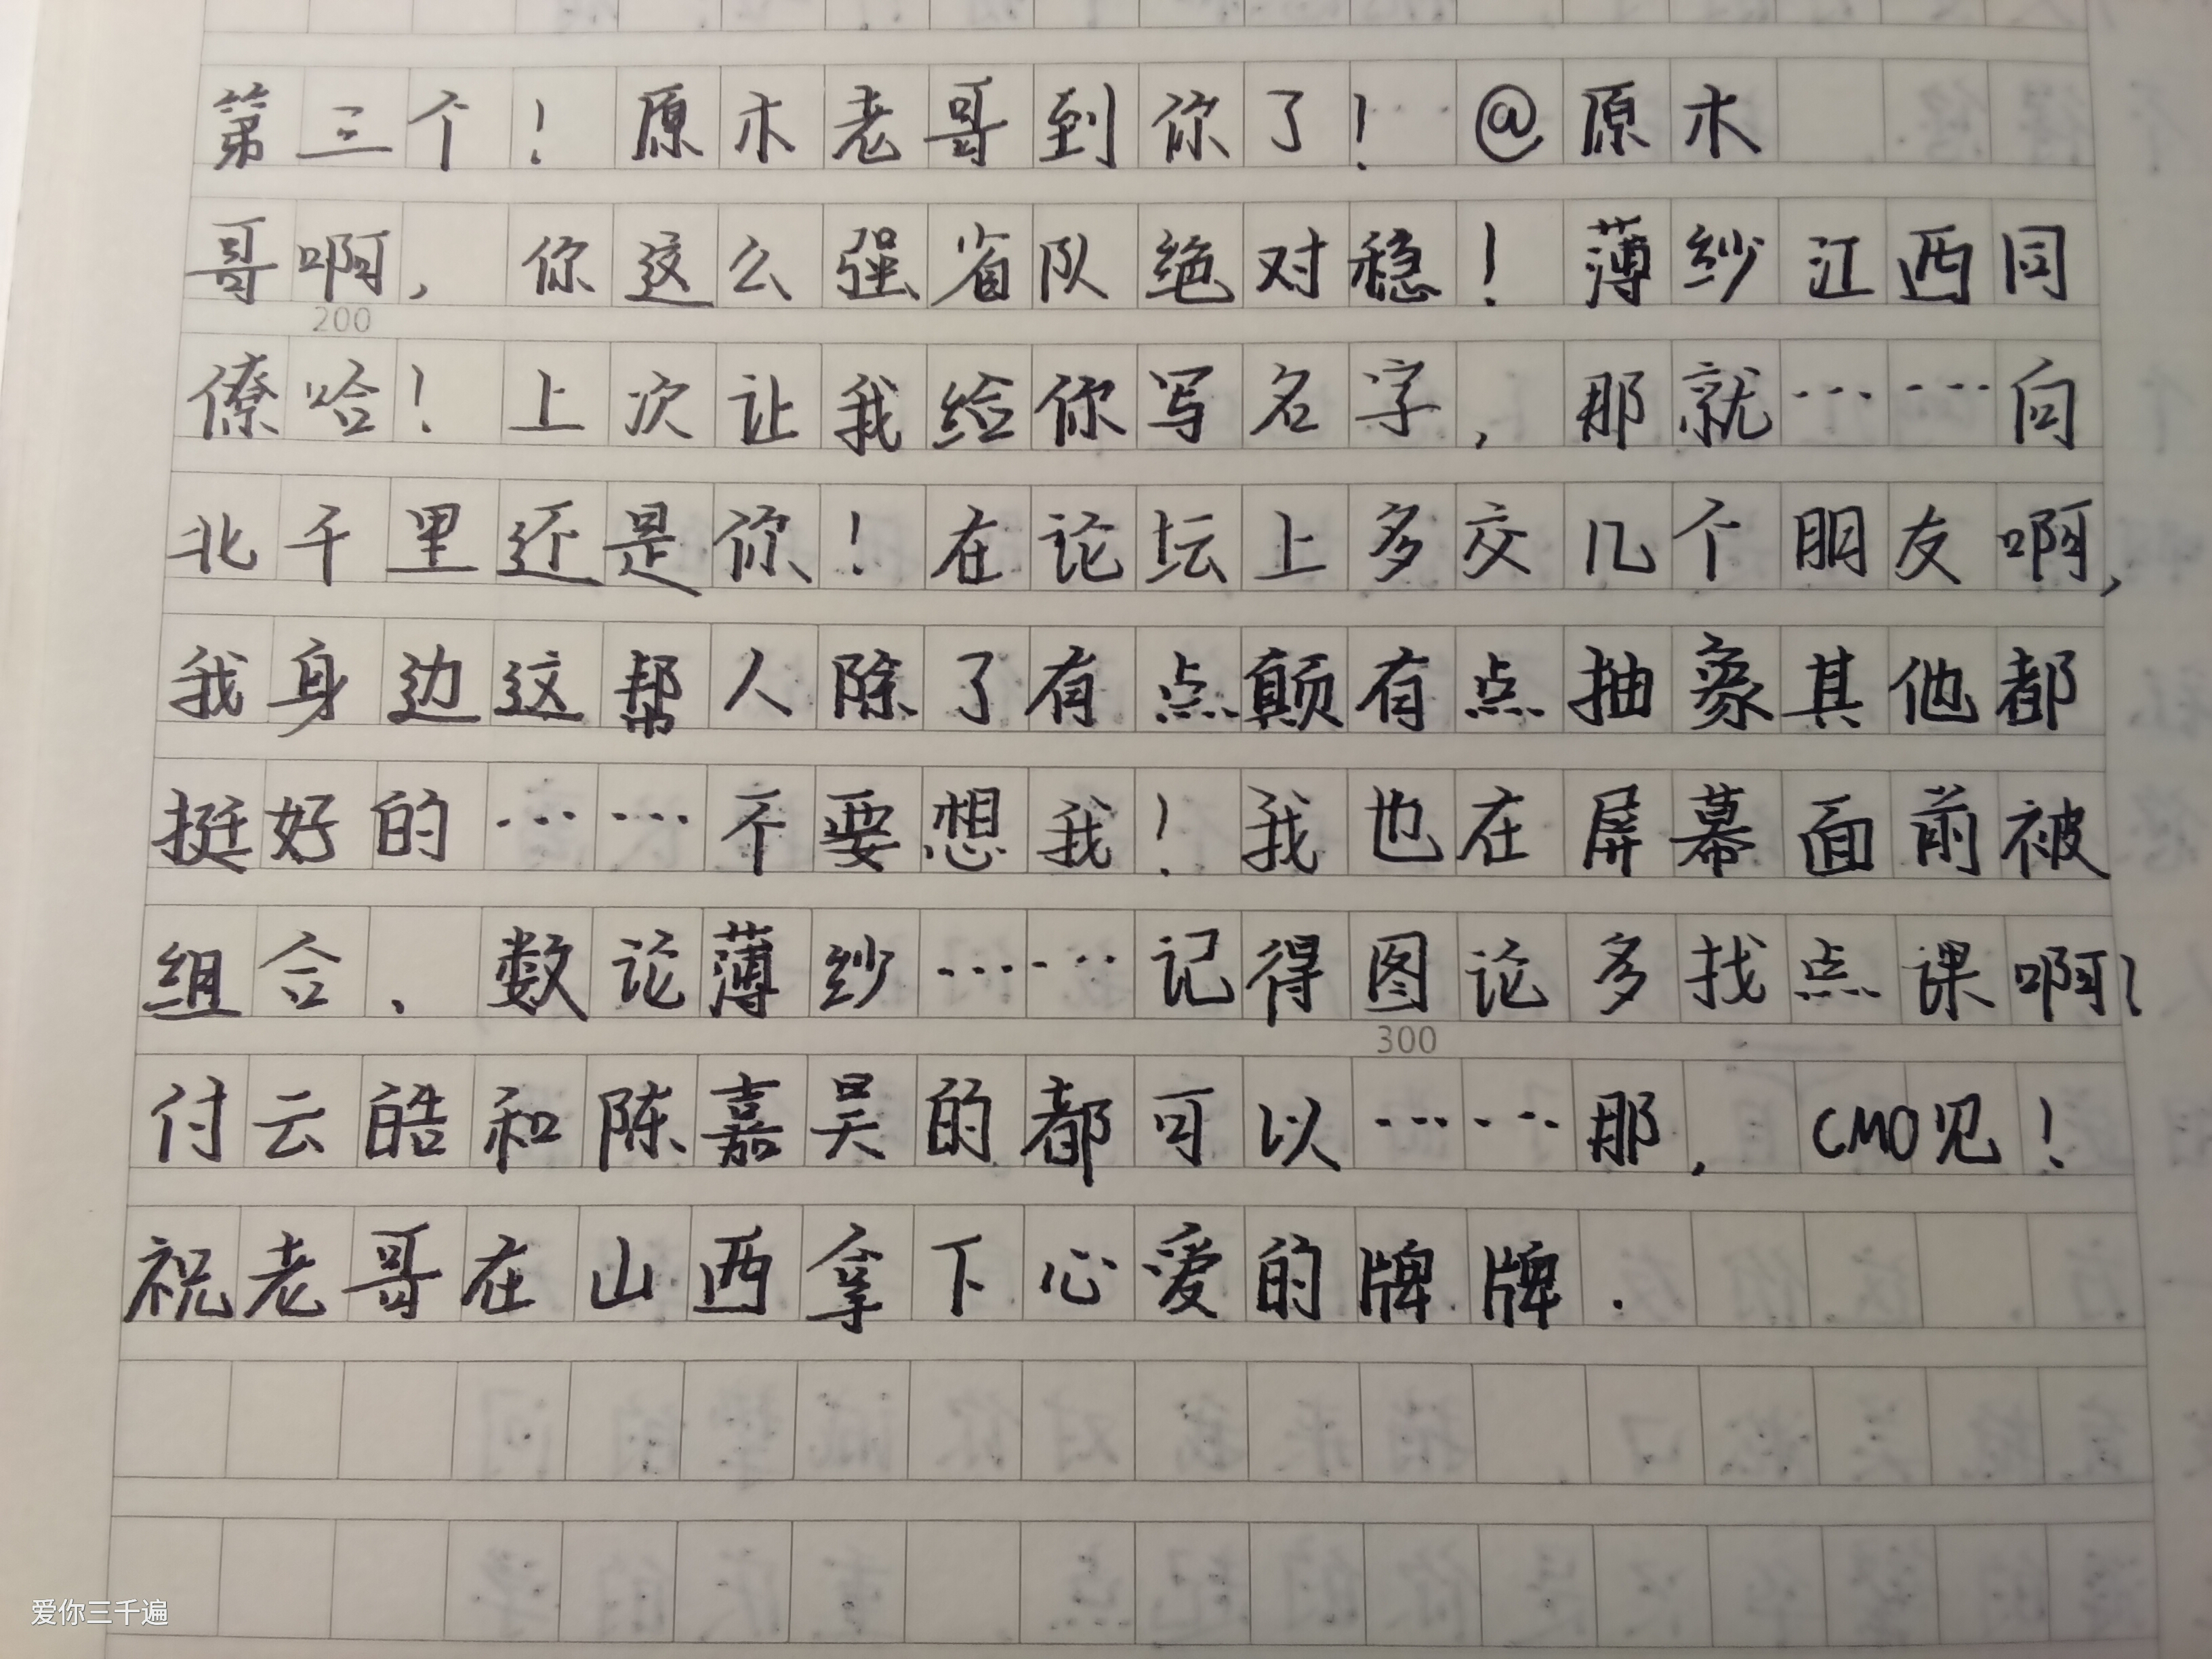 第三个！原木老哥到你了！@原木
哥啊，你这么强省队绝对稳！薄纱江西同
200
僚哈！上次让我给你写名字，那就……向
北千里还是你！在论坛上多交几个朋友啊，
我身边这帮人除了有点颠有点抽象其他都
挺好的……不要想我！我也在屏幕面前被
组合、数论薄纱……记得图论多找点课啊！
300
付云皓和陈嘉昊的都可以……那，CMO见！
祝老哥在山西拿下心爱的牌牌．
爱你三千遍